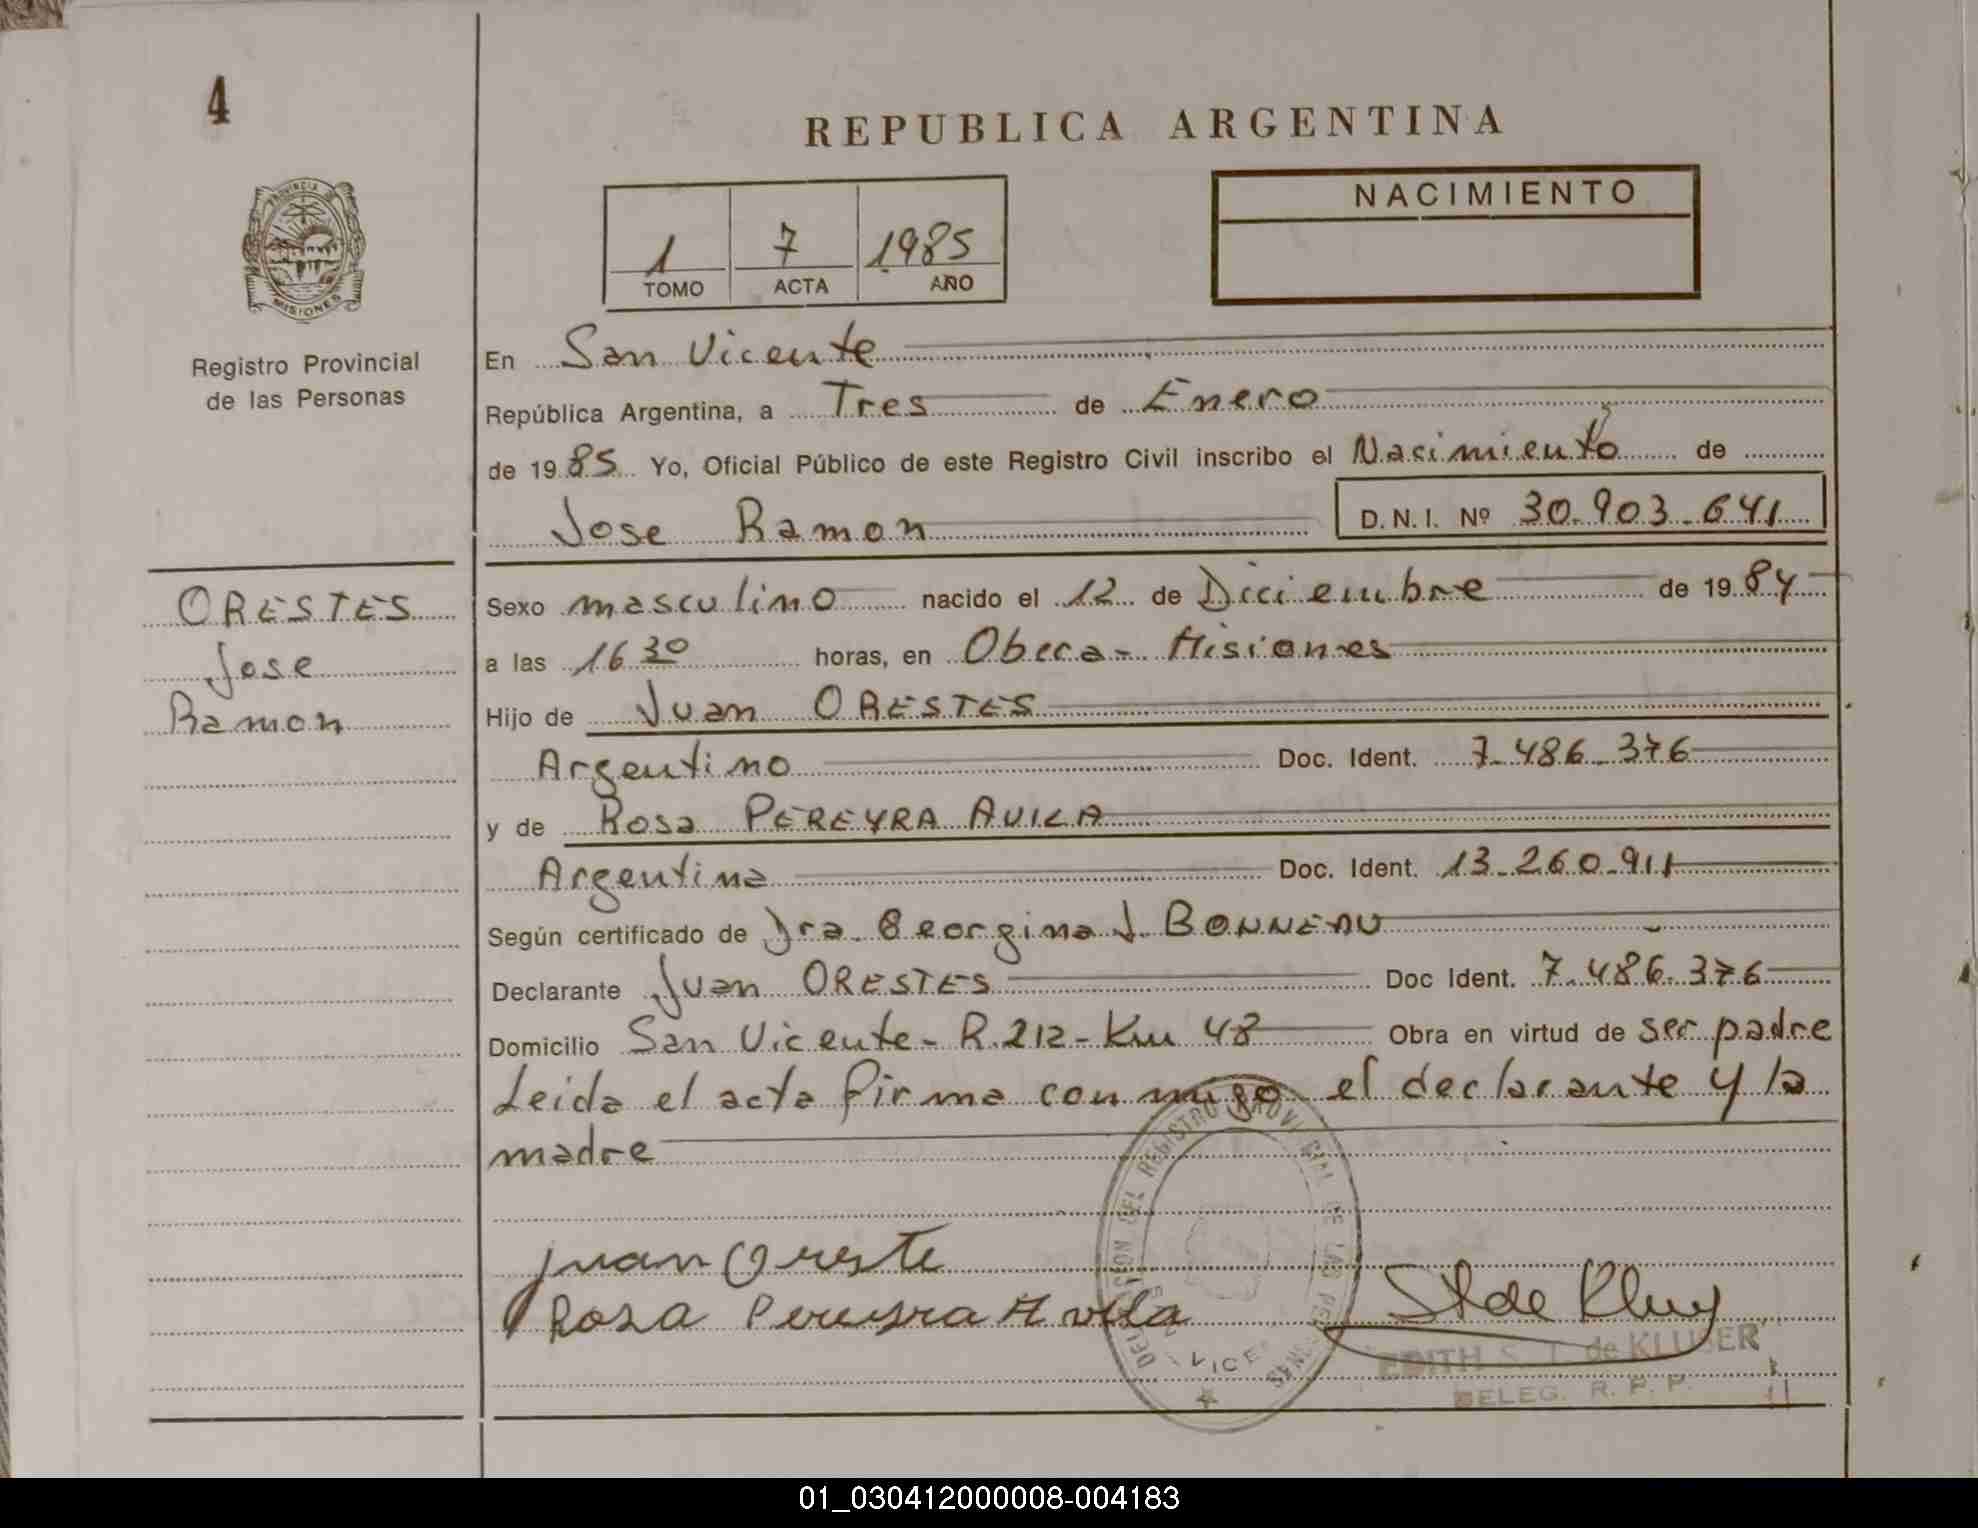 4
REPUBLICA ARGENTINA
PROVINCIA DE
MISIONES
Registro Provincial
de las Personas
1 7 1985
TOMO ACTA AÑO
NACIMIENTO
En San Vicente
República Argentina, a Tres de Enero
de 1985 Yo, Oficial Público de este Registro Civil inscribo el Nacimiento de
Jose Ramon D.N.I. Nº 30.903.641
ORESTES
Jose
Ramon
Sexo masculino nacido el 12 de Diciembre de 1984
a las 16 30 horas, en Obera - Misiones
Hijo de Juan ORESTES
Argentino Doc. Ident. 7.486.376
y de Rosa PEREYRA AVILA
Argentina Doc. Ident. 13.260.911
Según certificado de Dra. Georgina J. BONNEAU
Declarante Juan ORESTES Doc Ident. 7.486.376
Domicilio San Vicente - R.212 - Km 48 Obra en virtud de ser padre
Leida el acta firma conmigo el declarante y la
madre
Juan Oreste
Rosa Pereyra Avila
DELEGACION DEL REGISTRO PROVINCIAL DE LAS PERSONAS
EDITH S. T. de KLUBER
DELEG. R. P. P.
01_030412000008-004183